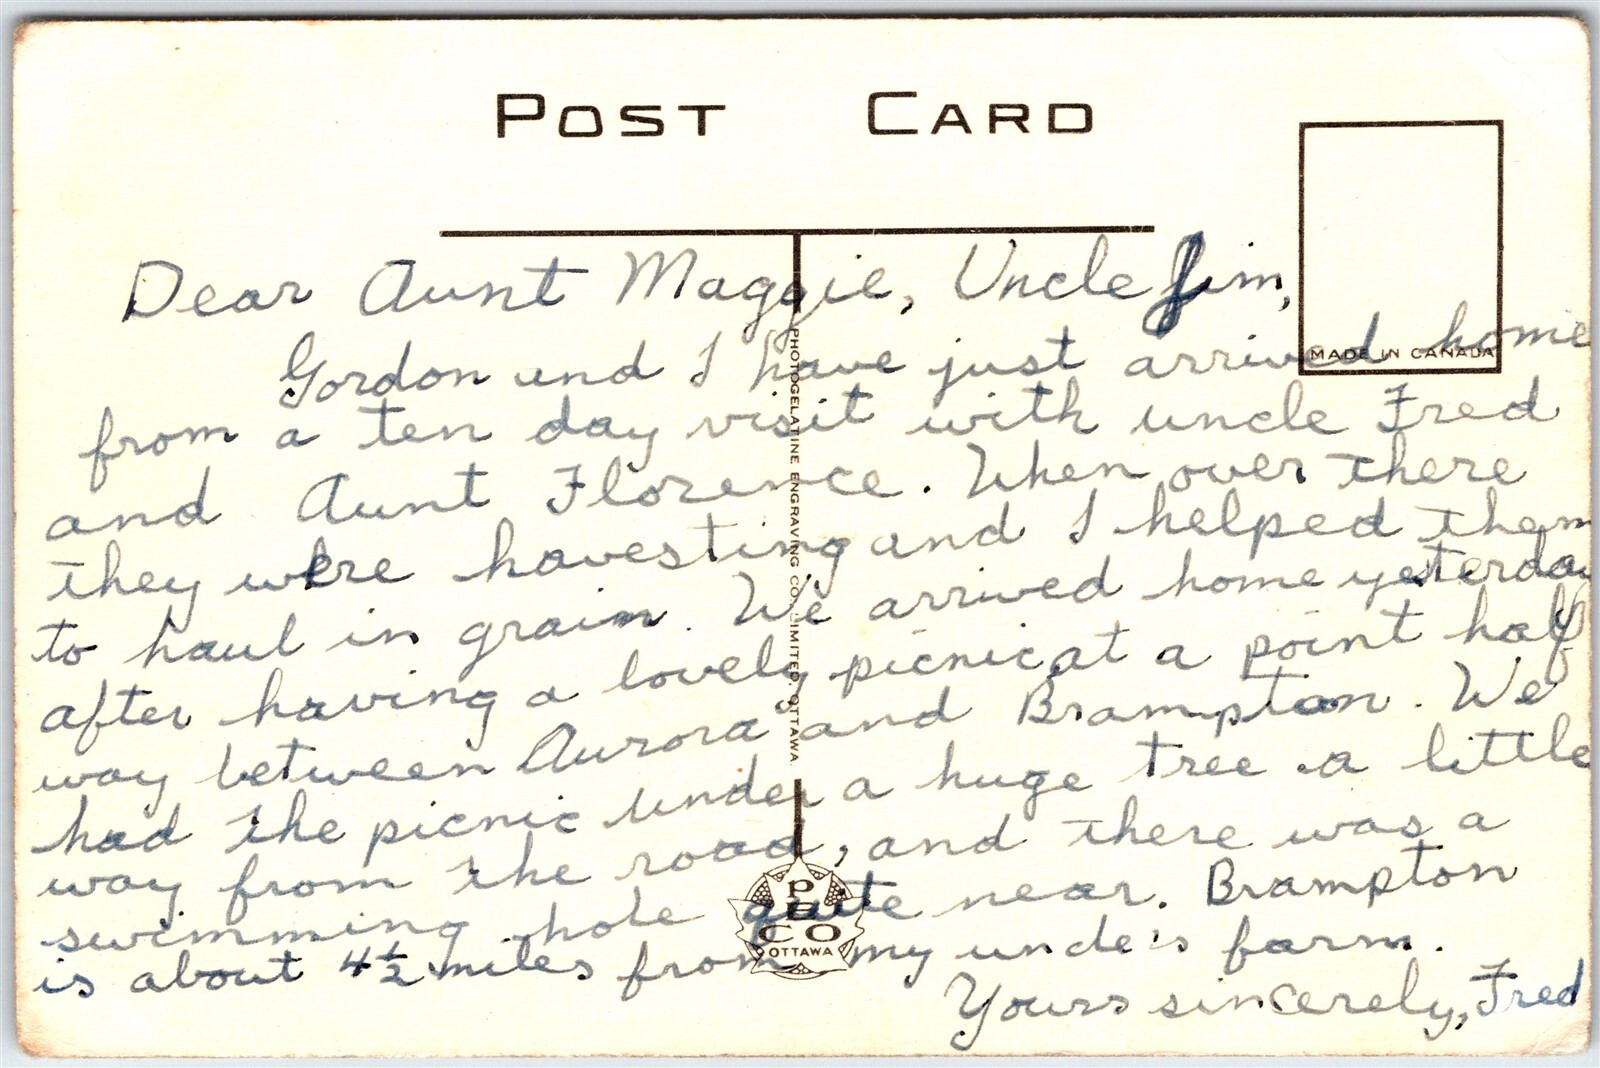 POST CARD
MADE IN CANADA
PHOTOGELATINE ENGRAVING CO. LIMITED, OTTAWA
Dear Aunt Maggie, Uncle Jim,
Gordon and I have just arrived home
from a ten day visit with uncle Fred
and Aunt Florence. When over there
they were havesting and I helped them
to haul in grain. We arrived home yesterday
after having a lovely picnic at a point half
way between Aurora and Brampton. We
had the picnic under a huge tree a little
way from the road, and there was a
swimming hole quite near. Brampton
is about 4½ miles from my uncle's farm.
Yours sincerely, Fred
PECO
OTTAWA